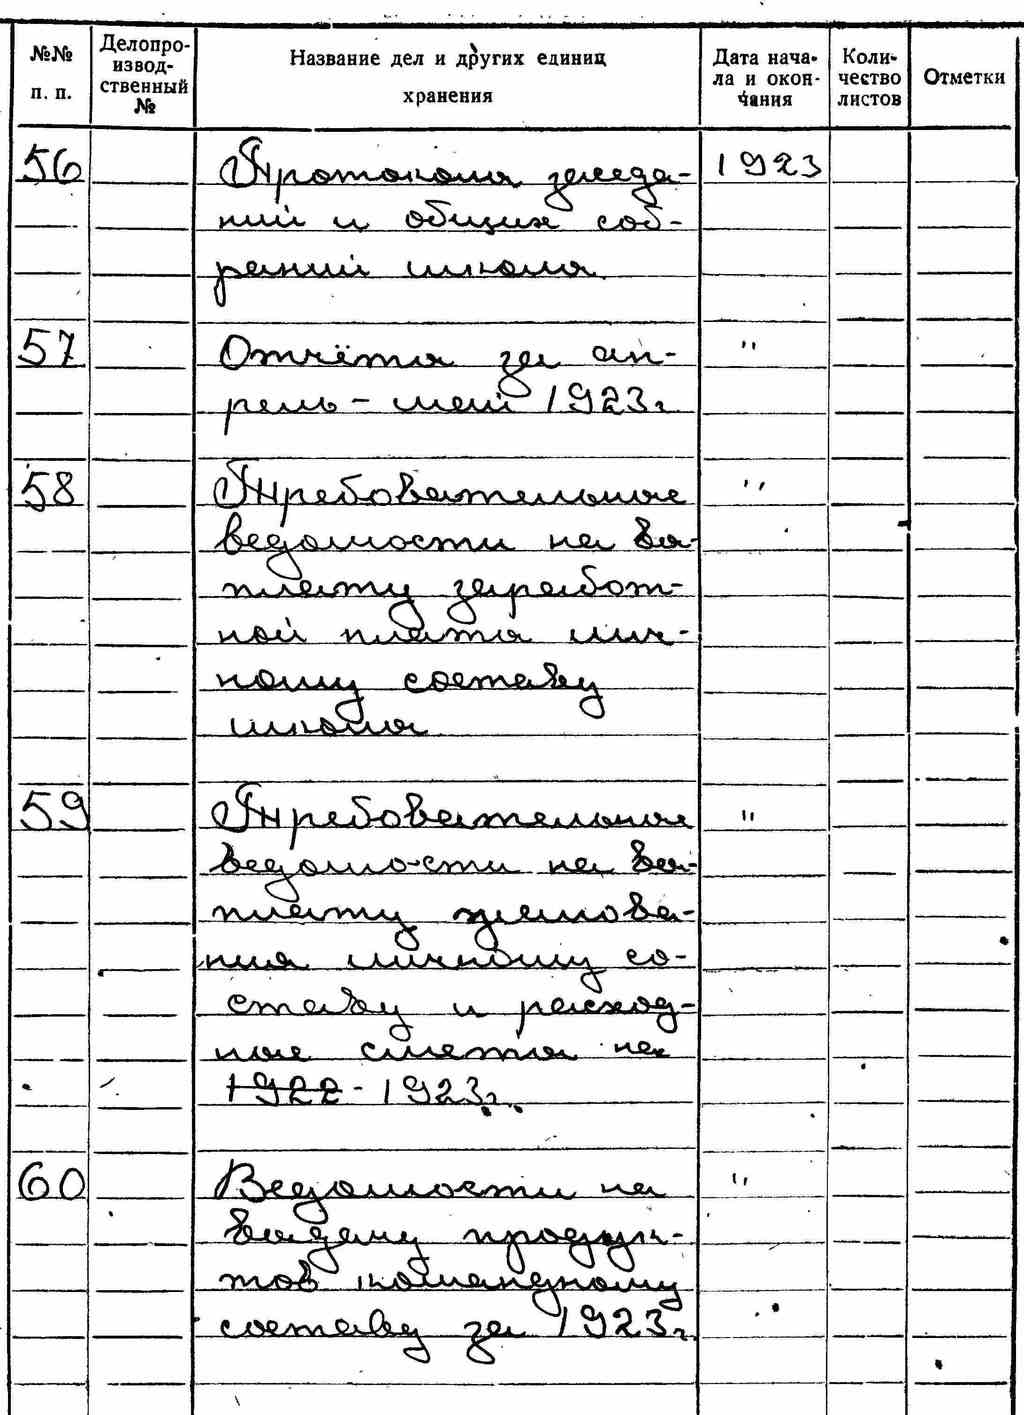 №№ п. п. Делопроизводственный № Название дел и других единиц хранения Дата начала и окончания Количество листов Отметки
56 Протоколы заседа- 1923
ний и общих соб-
раний школы
57 Отчёты за ап- "
рель - май 1923г.
58 Требовательные "
ведомости на вы-
плату заработ-
ной платы лич-
ному составу
школы
59 Требовательные "
ведомости на вы-
плату жалова-
ния личному со-
ставу и расход-
ные сметы на
1922 - 1923г.
60 Ведомости на "
выдачу продук-
тов командному
составу за 1923г.